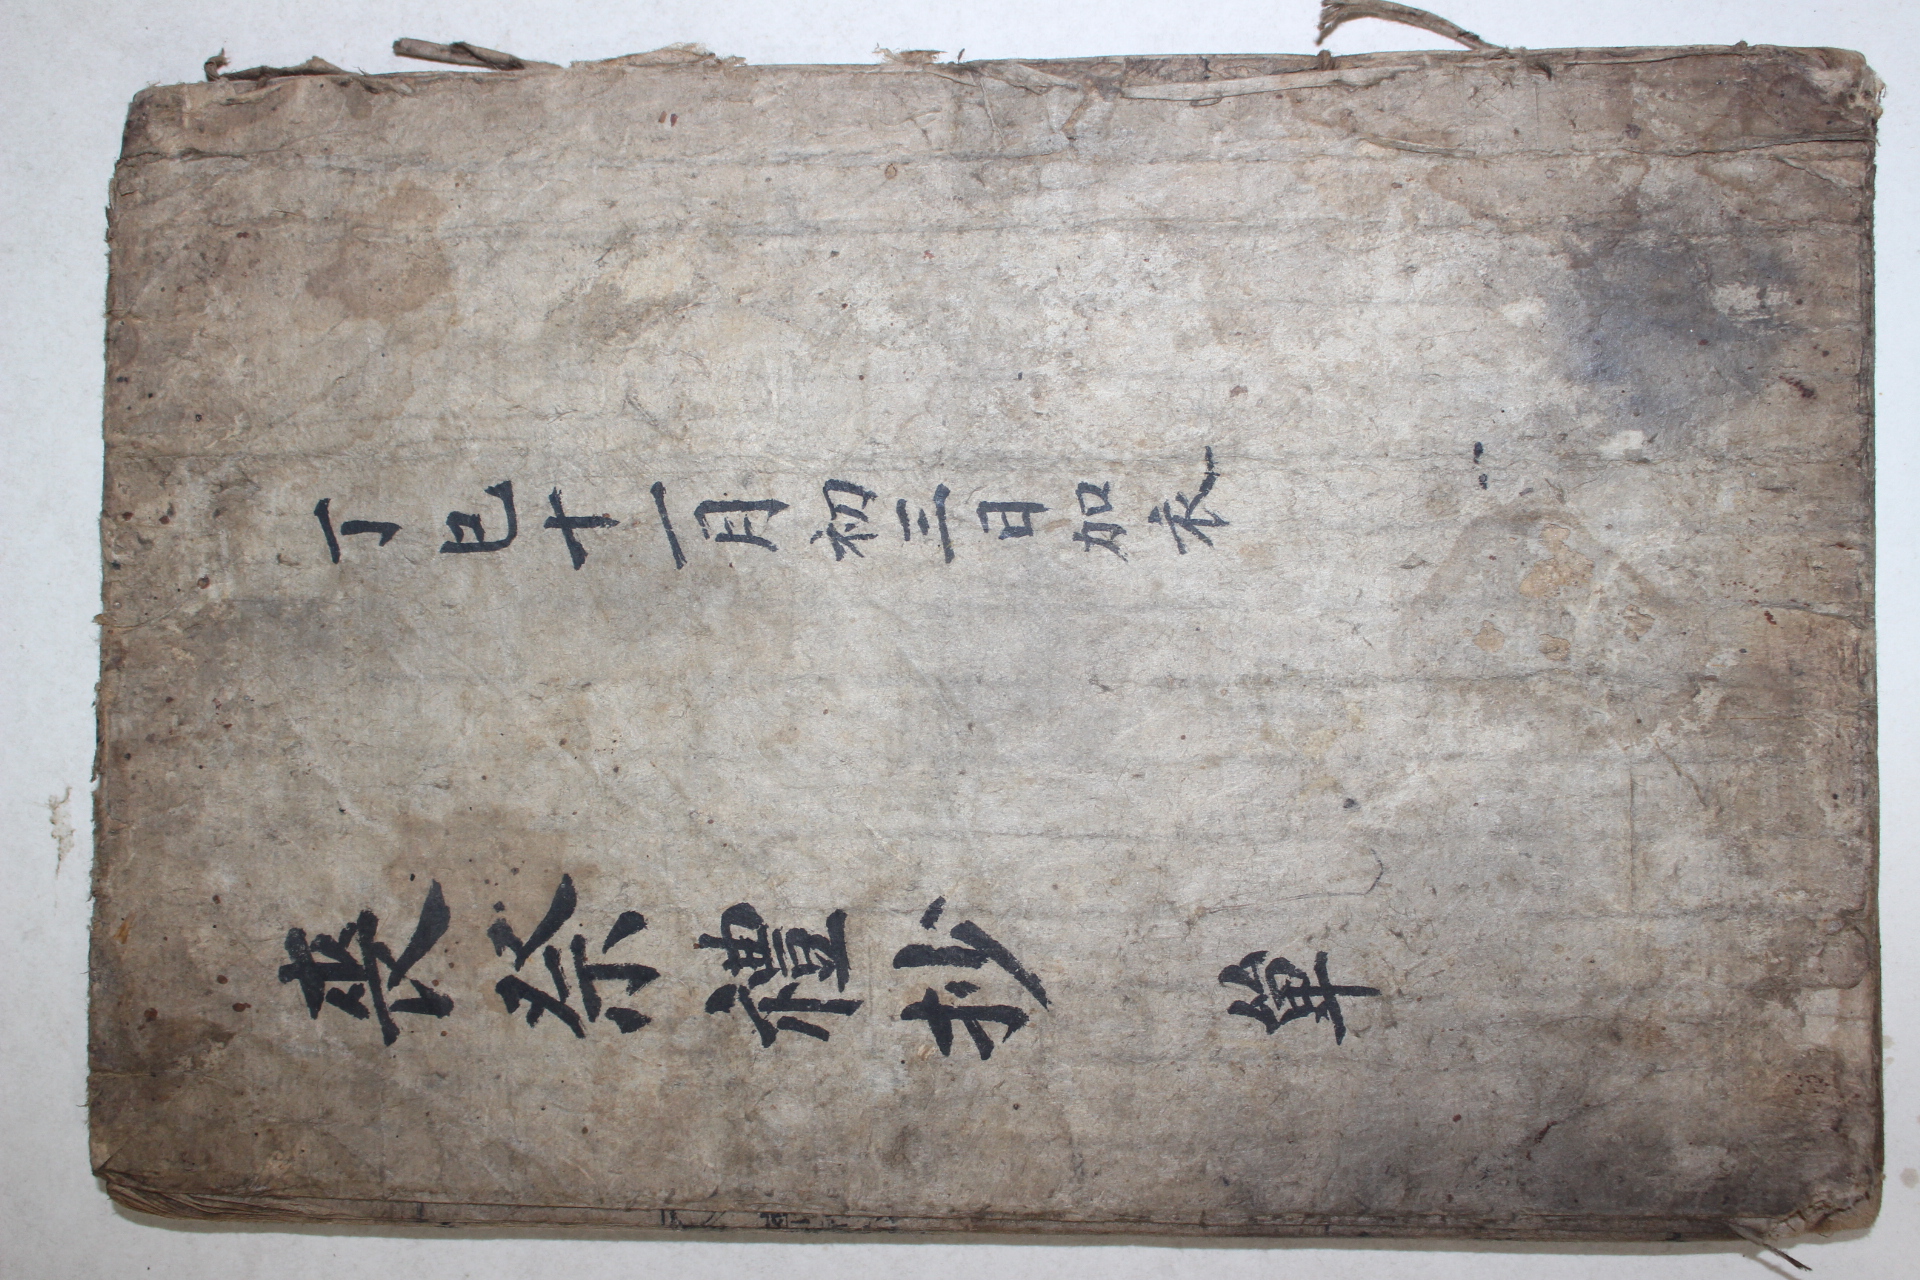 丁巳十一月初三日加衣
喪祭禮抄 單